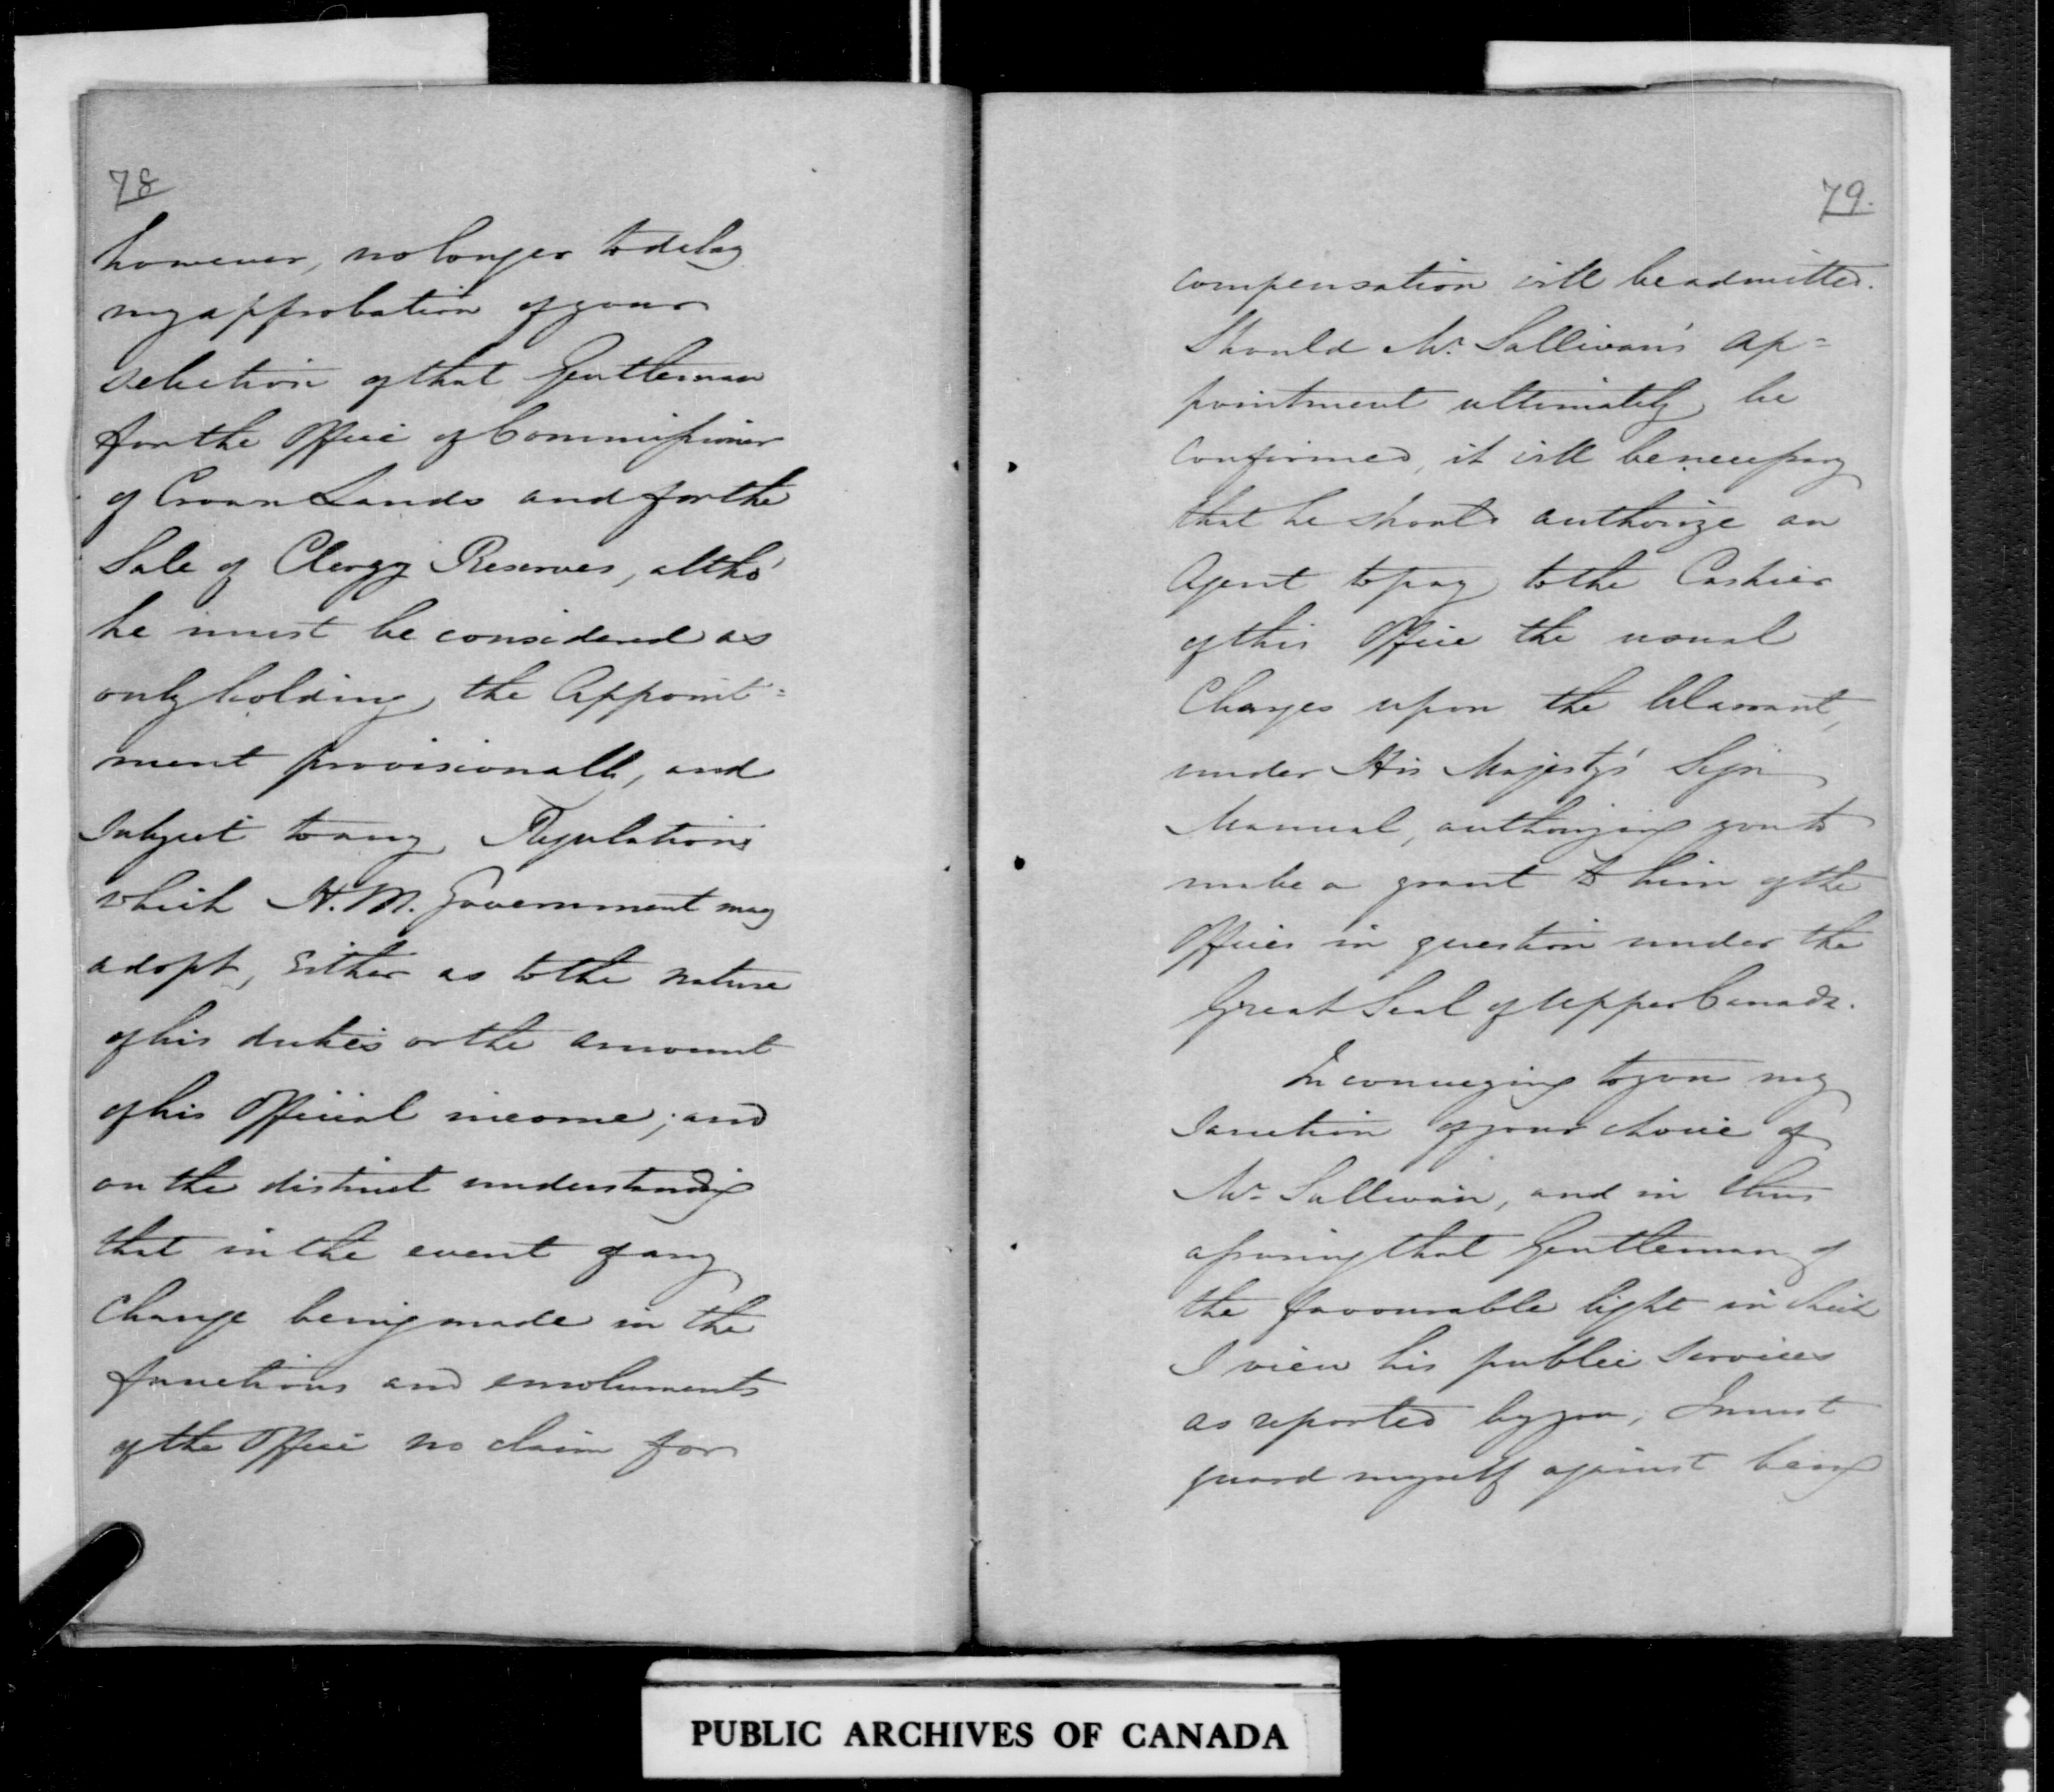 78
however, no longer to delay
my approbation of your
selection of that Gentleman
for the Office of Commissioner
of Crown Lands and for the
Sale of Clergy Reserves, altho'
he must be considered as
only holding the Appoint=
ment provisionally, and
subject to any Regulations
which H.M. Government may
adopt, either as to the nature
of his duties or the amount
of his Official income; and
on the distinct understanding
that in the event of any
change being made in the
functions and emoluments
of the Office no claim for
79.
compensation will be admitted.
Should Mr. Sullivan's ap=
pointment ultimately be
confirmed, it will be necessary
that he should authorize an
Agent to pay to the Cashier
of this Office the usual
Charges upon the Warrant,
under His Majesty's Sign
Manual, authorizing you to
make a grant to him of the
Offices in question under the
Great Seal of Upper Canada.
In conveying to you my
sanction of your choice of
Mr. Sullivan, and in thus
assuring that Gentleman of
the favourable light in which
I view his public services
as reported by you, I must
guard myself against being
PUBLIC ARCHIVES OF CANADA